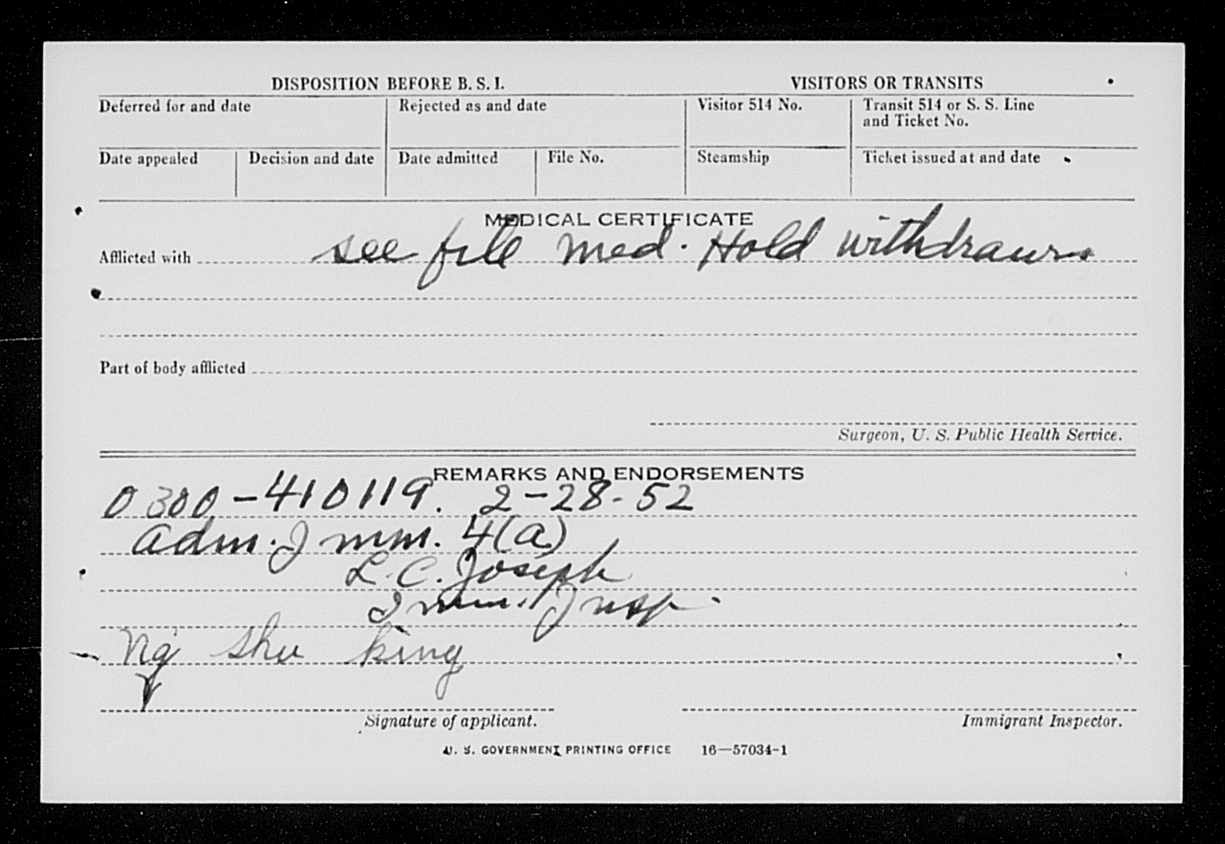 DISPOSITION BEFORE B. S. I. VISITORS OR TRANSITS
Deferred for and date Rejected as and date Visitor 514 No. Transit 514 or S. S. Line
and Ticket No.
Date appealed Decision and date Date admitted File No. Steamship Ticket issued at and date
MEDICAL CERTIFICATE
Afflicted with see file med. Hold withdrawn
Part of body afflicted
Surgeon, U. S. Public Health Service.
REMARKS AND ENDORSEMENTS
0300-410119. 2-28-52
Adm. Imm. 4(a)
L. C. Joseph
Imm. Insp.
Ng Shu king
Signature of applicant. Immigrant Inspector.
U. S. GOVERNMENT PRINTING OFFICE 16—57034-1